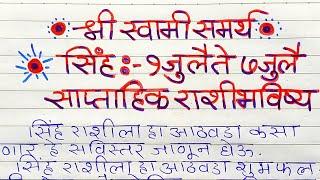 श्री स्वामी समर्थ
सिंह :- १ जुलै ते ७ जुलै
साप्ताहिक राशीभविष्य
सिंह राशीला हा आठवडा कसा
णार हे सविस्तर जाणून घेऊ.
सिंह राशीला हा आठवडा शुभ फल